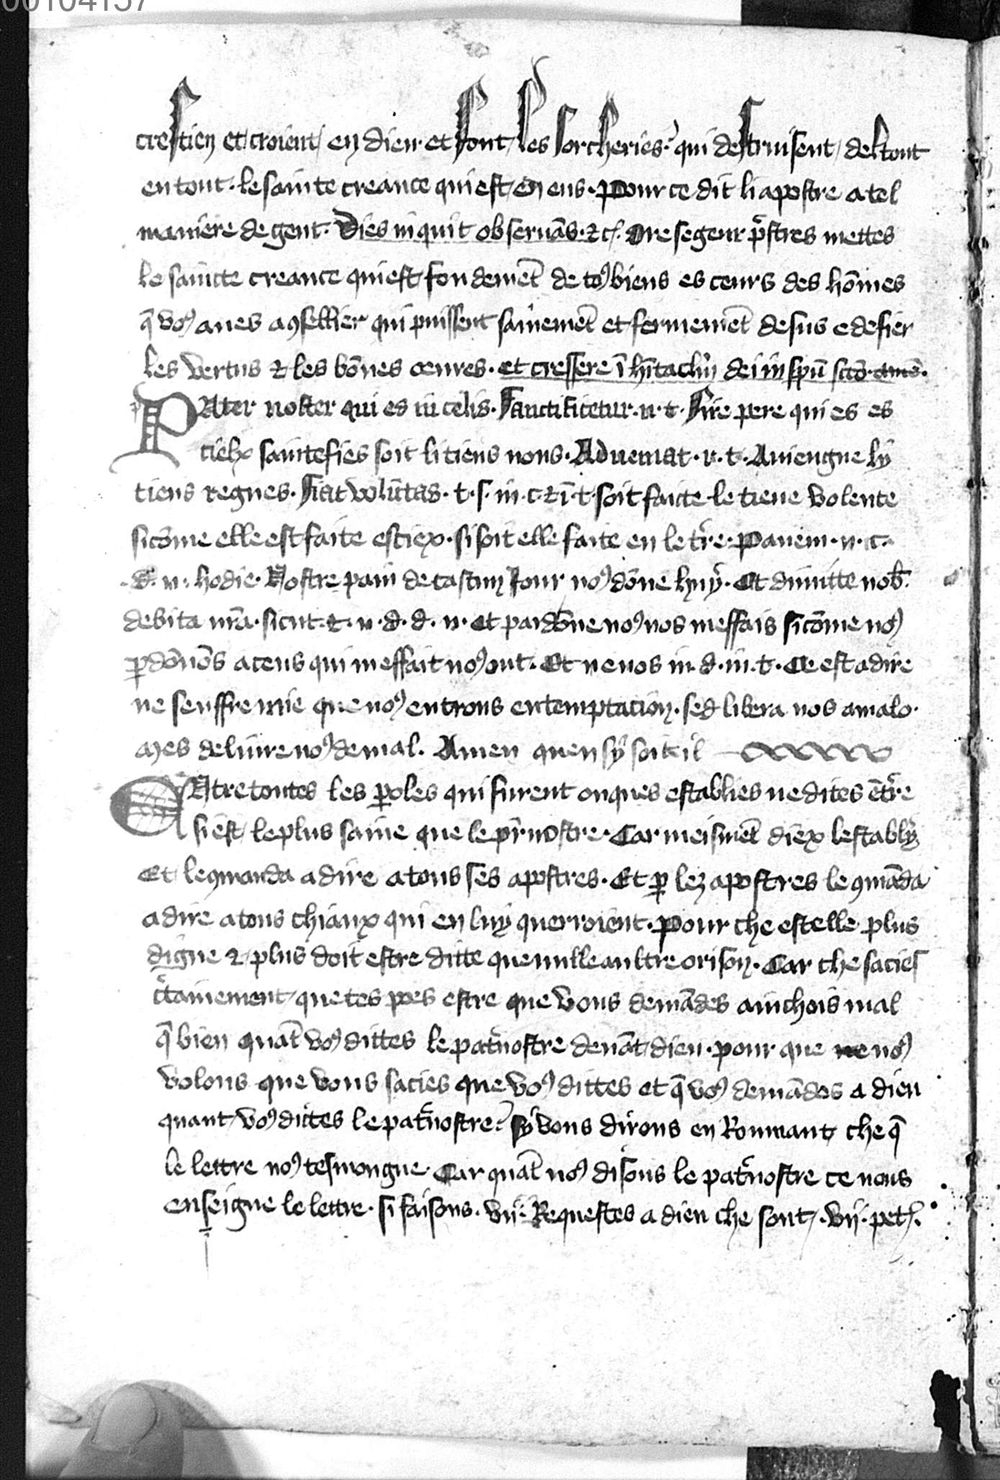 00104157
crestien et croient en dieu et font les sorcheries qui destruisent del tout
en tout · le sainte creance qui est en eus · Pour ce dit li apostre a tel
maniere de gent · Dies inquit obseruas · Ore segeur prestres mettes
le saincte creance qui est fondemēt de to9 biens es ceurs des hōmes
q̄ vo9 aues a 9sellier qui puissent sainemēt et fermemēt desus edefier
les vertus & les bōnes oeures · et cressere ī dei in spū scō · amē ·
PAter noster qui es in celis · Sanctificetur · n · t · Sire pere qui es es
cielx saintefies soit li tiens nons · Adueniat · r · t · Auiengne ly
tiens regnes · Fiat volūtas · t · s · in · c · & ī · t · soit faite le tiene volente
sicōme elle est faite es ciex · si soit elle faite en le tr̄e · Panem · n · c ·
d · n · hodie · Nostre pain de cascun Jour no9 dōne huy · Et dimitte nob̄ ·
debita nr̄a · sicut · e · n · d · d · n · Et pardōne no9 nos meffais sicōme no9
pdōnōs a ceus qui meffait no9 ont · Et ne nos in · d · in · t · Ce est a dire
ne seuffre mie que no9 entrons en temptacion · sed libera nos a malo ·
Mes deliure no9 de mal · Amen que ensy soit il
ENtre toutes les poles qui furent onques establies ne dites ētr̄e
si est le plus saine que le pr̄nostre · Car meismēt diex lestably
Et le 9manda a dire a tous ses apostres · Et p lez apostres le 9māda
a dire a tous chiaux qui en luy querroient · Pour che est elle plus
digne & plus doit estre ditte que nulle aultre orison · Car che sacies
c̄tainement que tes poes estre que vous demādes ainchois mal
q̄ bien quāt vo9 dittes le pat̄nostre deuāt dieu · pour que no9
volons que vous sacies que vo9 dittes et q̄ vo9 demādes a dieu
quant vo9 dittes le pat̄nostre · Sy vous dirons en Roumant che q̄
le lettre no9 tesmongne · Car quāt no9 disons le pat̄nostre ce nous
enseigne le lettre · si faisons · vii · Requestes a dieu che sont · vij · pet ·